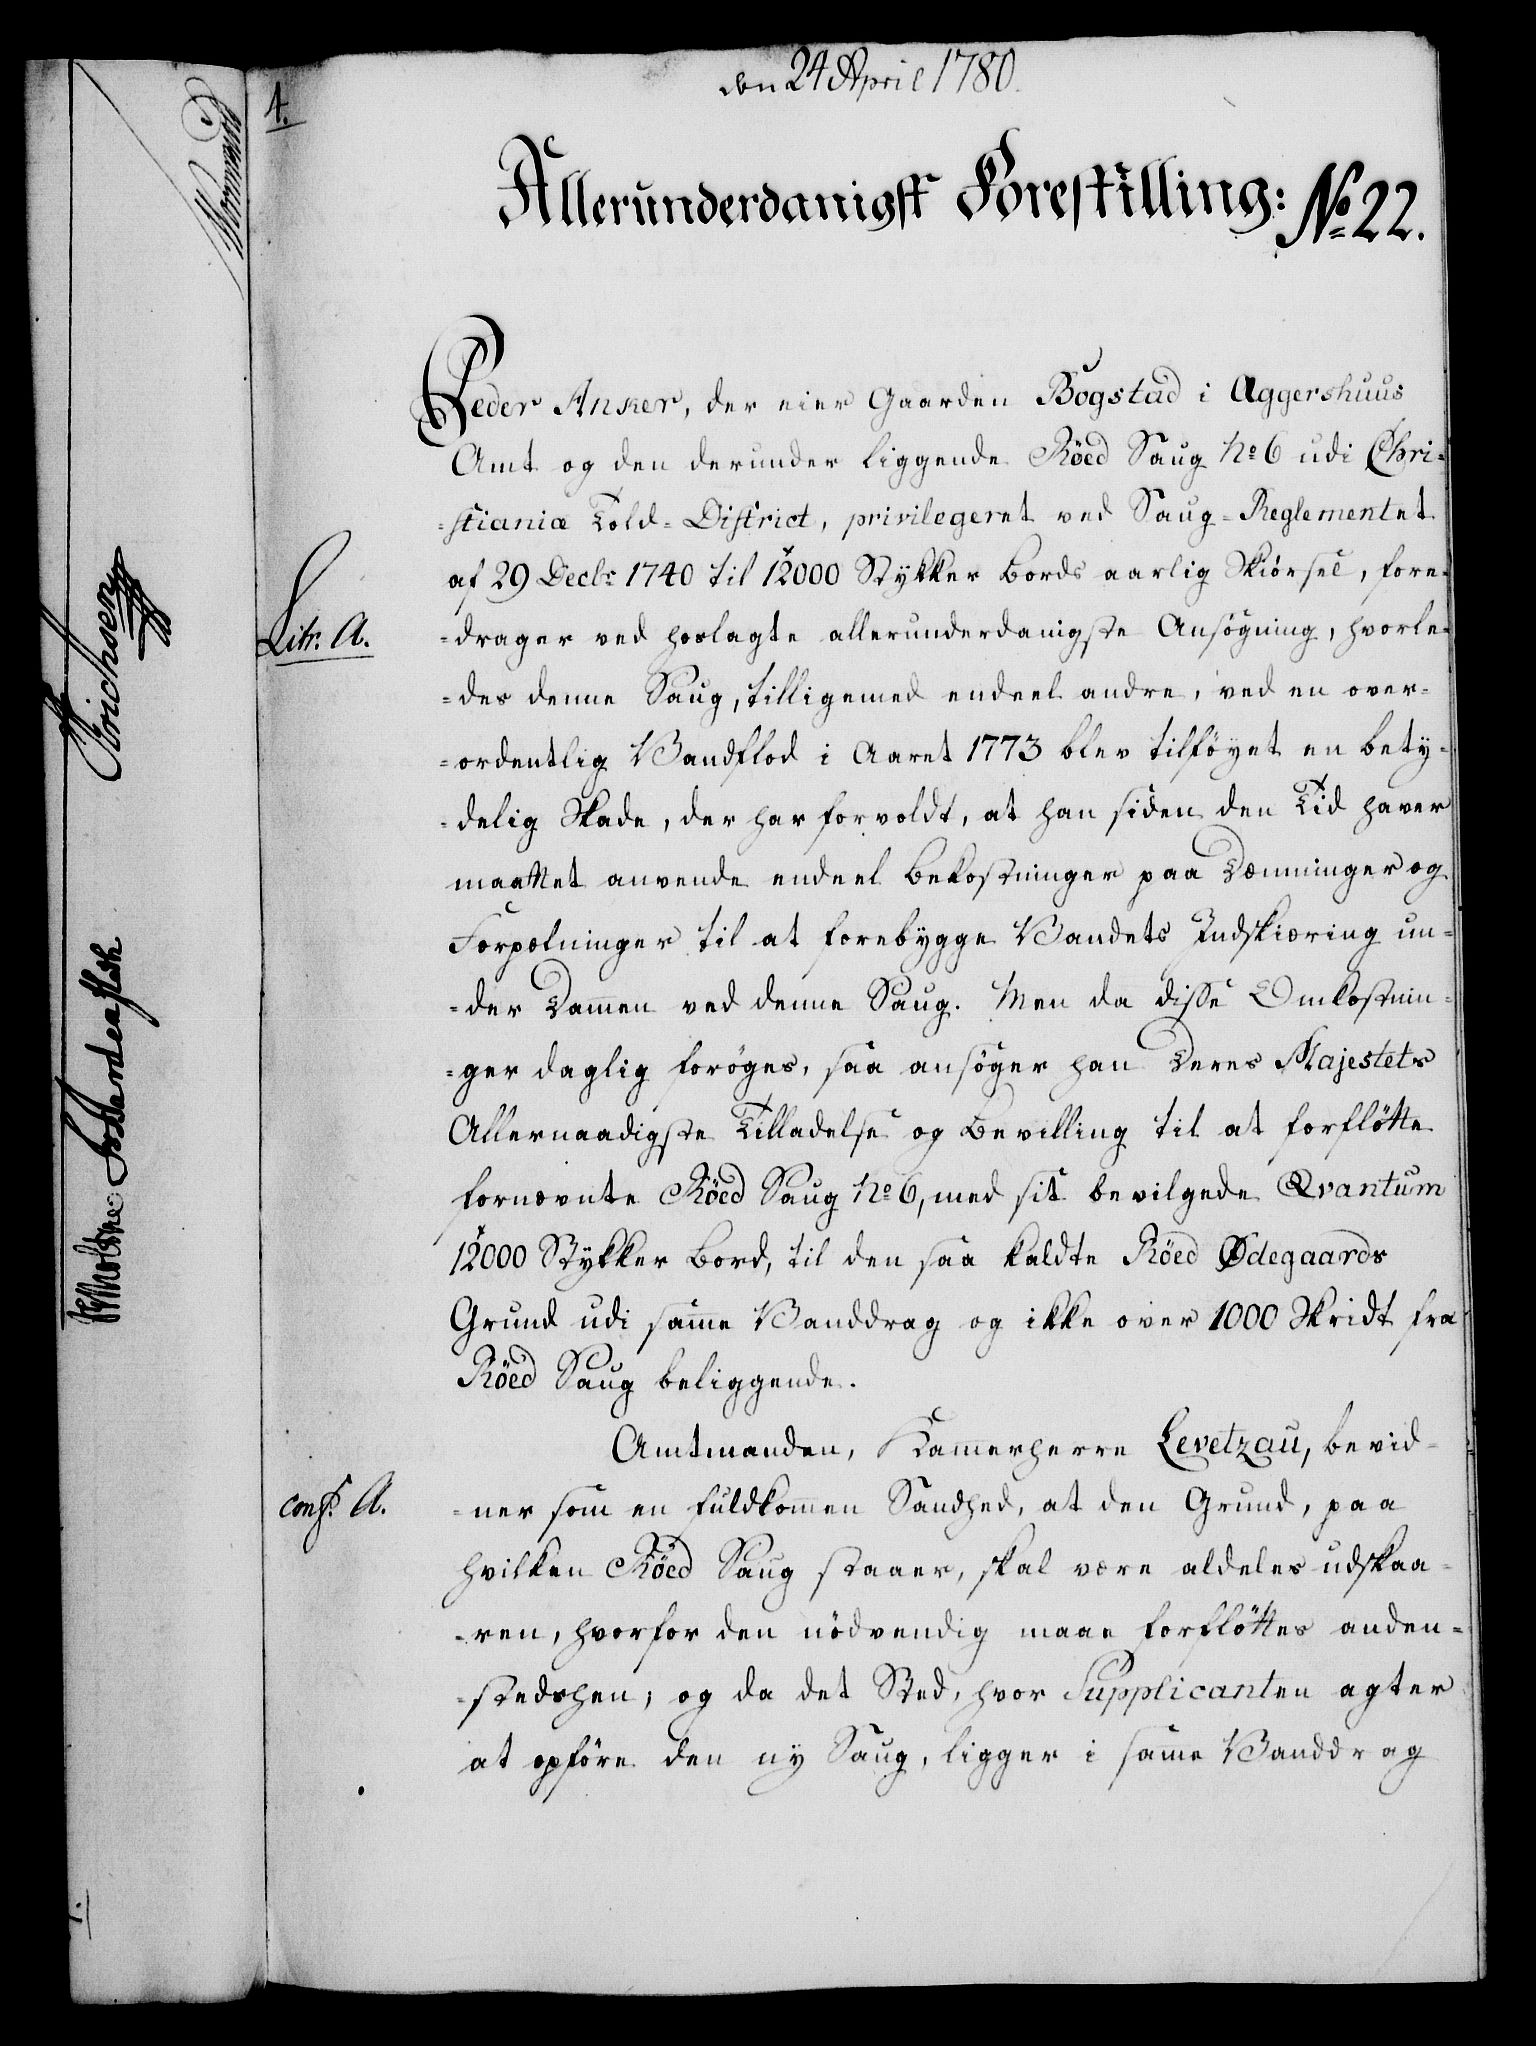 den 24 April 1780.
1.
Allerunderdanigst Forestilling: No 22.
Peder Anker, der eier Gaarden Bogstad i Aggershuus
Amt og den derunder liggende Röed Saug No 6 udi Chri-
-stianiæ Told-District, privilegeret ved Saug-Reglementet
af 29 Decbr 1740 til 12000 Stykker Bords aarlig Skiørsel, fore-
Litr. A.
-drager ved hoslagte allerunderdanigste Ansögning, hvorle-
-des denne Saug, tilligemed endeel andre, ved en over-
-ordentlig Vandflod i Aaret 1773 blev tilföyet en bety-
-delig Skade, der har forvoldt, at han siden den Tid haver
maattet anvende endeel Bekostninger paa Dæmninger og
Forpælninger til at forebygge Vandets Indskiæring un-
-der Dammen ved denne Saug. Men da disse Omkostnin-
-ger daglig foröges, saa ansöger han Deres Majestets
Allernaadigste Tilladelse og Bevilling til at forflötte
fornævnte Röed Saug No 6, med sit bevilgede Qvantum
12000 Stykker Bord, til den saa kaldte Röed Ödegaards
Grund udi samme Vanddrag og ikke over 1000 Skridt fra
Röed Saug beliggende.
Amtmanden, Kammerherre Levetzau, bevid-
conf. A.
-ner som en fuldkommen Sandhed, at den Grund, paa
hvilken Röed Saug staaer, skal være aldeles udskaa-
-ren, hvorfor den nödvendig maae forflöttes anden-
-stedshen; og da det Sted, hvor Supplicanten agter
at opföre den ny Saug, ligger i samme Vanddrag
Erichsen